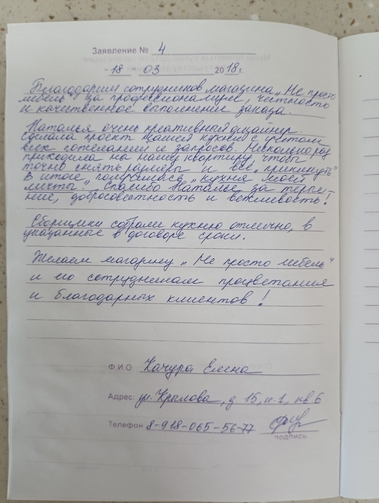 Заявление № 4
18 03 2018 г.
Благодарим сотрудников магазина „Не просто
мебель" за профессионализм, честность
и качественное выполнение заказа.
Наталья очень креативный дизайнер.
Сделала проект нашей кухни с учётом
всех пожеланий и запросов. Несколько раз
приходила на нашу квартиру, чтобы
точно снять размеры и все „прикинуть"
в итоге получилась „кухня моей
мечты". Спасибо Наталье за терпе-
ние, добросовестность и вежливость!
Сборщики собрали кухню отлично, в
указанные в договоре сроки.
Желаем магазину „Не просто мебель"
и его сотрудникам процветания
и благодарных клиентов!
Ф.И.О Качура Елена
Адрес ул. Крылова, д 15, кв 6
Телефон 8-918-065-56-77
подпись